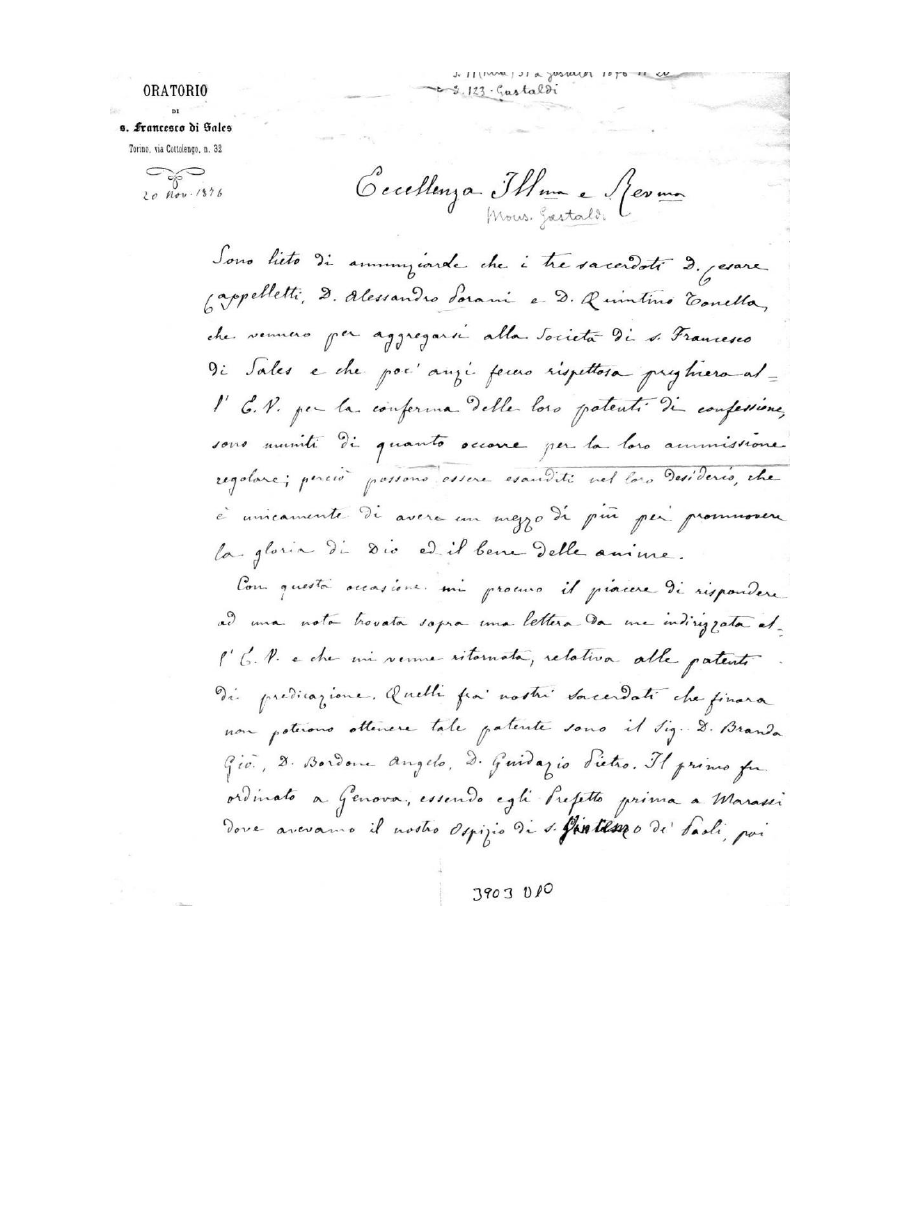 ORATORIO
DI
s. Francesco di Sales
Torino, via Cottolengo, n. 32
20 Nov. 1876
S. 123 - Gastaldi
Eccellenza Illma e Revma
Mons. Gastaldi
Sono lieto di annunziarle che i tre sacerdoti D. Cesare
Cappelletti, D. Alessandro Porani e D. Quintino Tonella,
che vennero per aggregarsi alla Società di s. Francesco
di Sales e che poc' anzi fecero rispettosa preghiera al=
l' E. V. per la conferma delle loro patenti di confessione,
sono muniti di quanto occorre per la loro ammissione
regolare; perciò possono essere esauditi nel loro desiderio, che
è unicamente di avere un mezzo di più per promuovere
la gloria di Dio ed il bene delle anime.
Con questa occasione mi procuro il piacere di rispondere
ad una nota trovata sopra una lettera da me indirizzata al-
l' E. V. e che mi venne ritornata, relativa alle patenti
di predicazione. Quelli fra' nostri sacerdoti che finora
non poterono ottenere tale patente sono il Sig. D. Branda
Gio., D. Bordone Angelo, D. Guidazio Pietro. Il primo fu
ordinato a Genova, essendo egli Prefetto prima a Marassi
dove avevamo il nostro Ospizio di s. de' Paoli, poi
3903